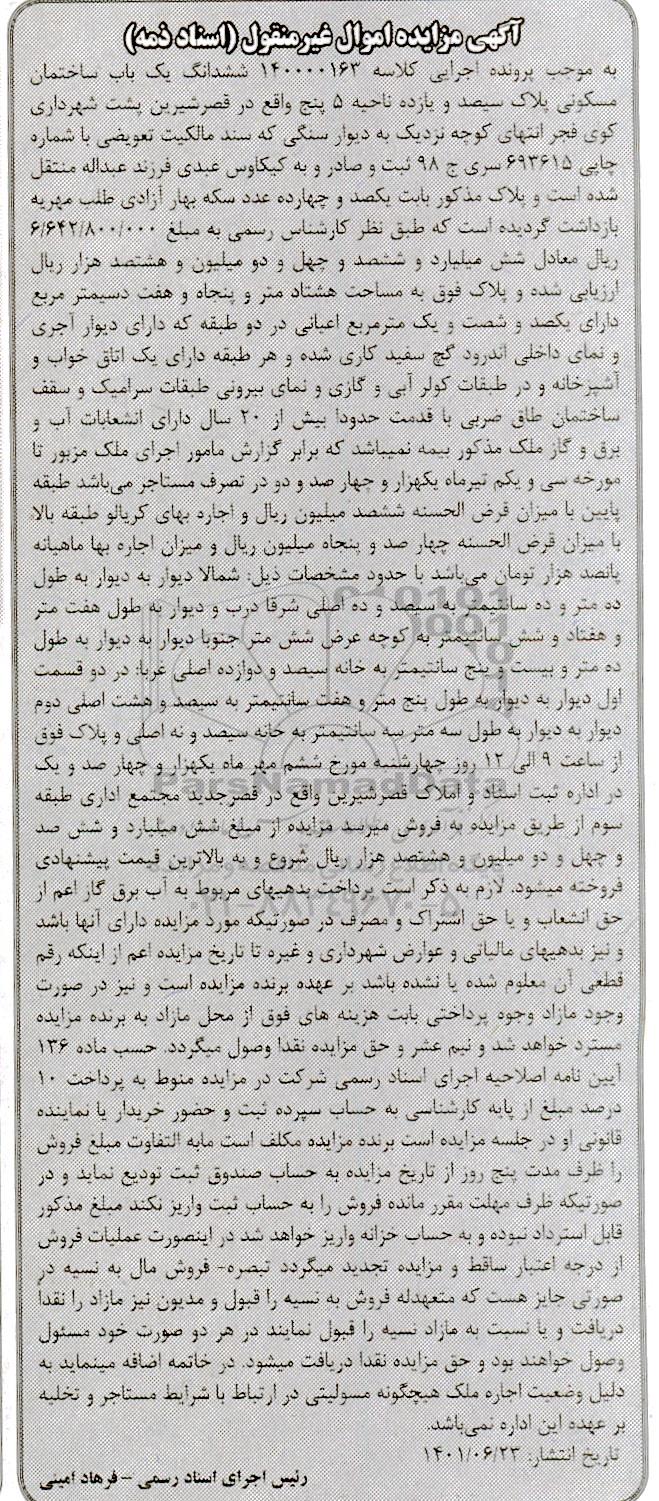 آگهی مزایده اموال غیرمنقول (اسناد ذمه)
به موجب پرونده اجرایی کلاسه ۱۴۰۰۰۰۱۶۳ ششدانگ یک باب ساختمان
مسکونی پلاک سیصد و یازده ناحیه ۵ پنج واقع در قصرشیرین پشت شهرداری
کوی فجر انتهای کوچه نزدیک به دیوار سنگی که سند مالکیت تعویضی با شماره
چاپی ۶۹۳۶۱۵ سری ج ۹۸ ثبت و صادر و به کیکاوس عبدی فرزند عبداله منتقل
شده است و پلاک مذکور بابت یکصد و چهارده عدد سکه بهار آزادی طلب مهریه
بازداشت گردیده است که طبق نظر کارشناس رسمی به مبلغ ۶/۶۴۲/۸۰۰/۰۰۰
ریال معادل شش میلیارد و ششصد و چهل و دو میلیون و هشتصد هزار ریال
ارزیابی شده و پلاک فوق به مساحت هشتاد متر و پنجاه و هفت دسیمتر مربع
دارای یکصد و شصت و یک مترمربع اعیانی در دو طبقه که دارای دیوار آجری
و نمای داخلی اندرود گچ سفید کاری شده و هر طبقه دارای یک اتاق خواب و
آشپزخانه و در طبقات کولر آبی و گازی و نمای بیرونی طبقات سرامیک و سقف
ساختمان طاق ضربی با قدمت حدودا بیش از ۲۰ سال دارای انشعابات آب و
برق و گاز ملک مذکور بیمه نمیباشد که برابر گزارش مامور اجرای ملک مزبور تا
مورخه سی و یکم تیرماه یکهزار و چهار صد و دو در تصرف مستاجر می‌باشد طبقه
پایین با میزان قرض الحسنه ششصد میلیون ریال و اجاره بهای کریالو طبقه بالا
با میزان قرض الحسنه چهار صد و پنجاه میلیون ریال و میزان اجاره بها ماهیانه
پانصد هزار تومان می‌باشد با حدود مشخصات ذیل: شمالا دیوار به دیوار به طول
ده متر و ده سانتیمتر به سیصد و ده اصلی شرقا درب و دیوار به طول هفت متر
و هفتاد و شش سانتیمتر به کوچه عرض شش متر جنوبا دیوار به دیوار به طول
ده متر و بیست و پنج سانتیمتر به خانه سیصد و دوازده اصلی غربا: در دو قسمت
اول دیوار به دیوار به طول پنج متر و هفت سانتیمتر به سیصد و هشت اصلی دوم
دیوار به دیوار به طول سه متر سه سانتیمتر به خانه سیصد و نه اصلی و پلاک فوق
از ساعت ۹ الی ۱۲ روز چهارشنبه مورخ ششم مهر ماه یکهزار و چهار صد و یک
در اداره ثبت اسناد و املاک قصرشیرین واقع در قصرجدید مجتمع اداری طبقه
سوم از طریق مزایده به فروش میرسد مزایده از مبلغ شش میلیارد و شش صد
و چهل و دو میلیون و هشتصد هزار ریال شروع و به بالاترین قیمت پیشنهادی
فروخته میشود. لازم به ذکر است پرداخت بدهیهای مربوط به آب برق گاز اعم از
حق انشعاب و یا حق اشتراک و مصرف در صورتیکه مورد مزایده دارای آنها باشد
و نیز بدهیهای مالیاتی و عوارض شهرداری و غیره تا تاریخ مزایده اعم از اینکه رقم
قطعی آن معلوم شده یا نشده باشد بر عهده برنده مزایده است و نیز در صورت
وجود مازاد وجوه پرداختی بابت هزینه های فوق از محل مازاد به برنده مزایده
مسترد خواهد شد و نیم عشر و حق مزایده نقدا وصول میگردد. حسب ماده ۱۳۶
آیین نامه اصلاحیه اجرای اسناد رسمی شرکت در مزایده منوط به پرداخت ۱۰
درصد مبلغ از پایه کارشناسی به حساب سپرده ثبت و حضور خریدار یا نماینده
قانونی او در جلسه مزایده است برنده مزایده مکلف است مابه التفاوت مبلغ فروش
را ظرف مدت پنج روز از تاریخ مزایده به حساب صندوق ثبت تودیع نماید و در
صورتیکه ظرف مهلت مقرر مانده فروش را به حساب ثبت واریز نکند مبلغ مذکور
قابل استرداد نبوده و به حساب خزانه واریز خواهد شد در اینصورت عملیات فروش
از درجه اعتبار ساقط و مزایده تجدید میگردد تبصره- فروش مال به نسیه در
صورتی جایز هست که متعهدله فروش به نسیه را قبول و مدیون نیز مازاد را نقداً
دریافت و یا نسبت به مازاد نسیه را قبول نمایند در هر دو صورت خود مسئول
وصول خواهند بود و حق مزایده نقدا دریافت میشود. در خاتمه اضافه مینماید به
دلیل وضعیت اجاره ملک هیچگونه مسولیتی در ارتباط با شرایط مستاجر و تخلیه
بر عهده این اداره نمی‌باشد.
تاریخ انتشار: ۱۴۰۱/۰۶/۲۳
رئیس اجرای اسناد رسمی – فرهاد امینی
ParsNamadData
۰۲۱-۸۸۳۴۹۶۷۰-۵